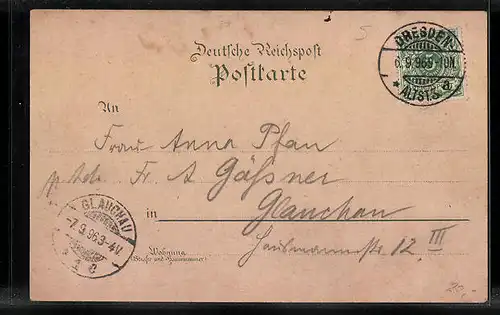 5
Deutsche Reichspost
Postkarte
DRESDEN-
6.9.96 9-10N.
* ALTST. 3. a.
An
Frau Anna Pfau
p. Adr. Fr. A Gäßner
in Glauchau
GLAUCHAU
-7.9.96. 3-4V.
Wohnung
(Straße und Hausnummer)
Hausmannstr. 12 III
20,-